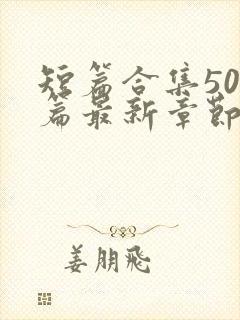 短篇合集50
篇最新章节
姜朋飛